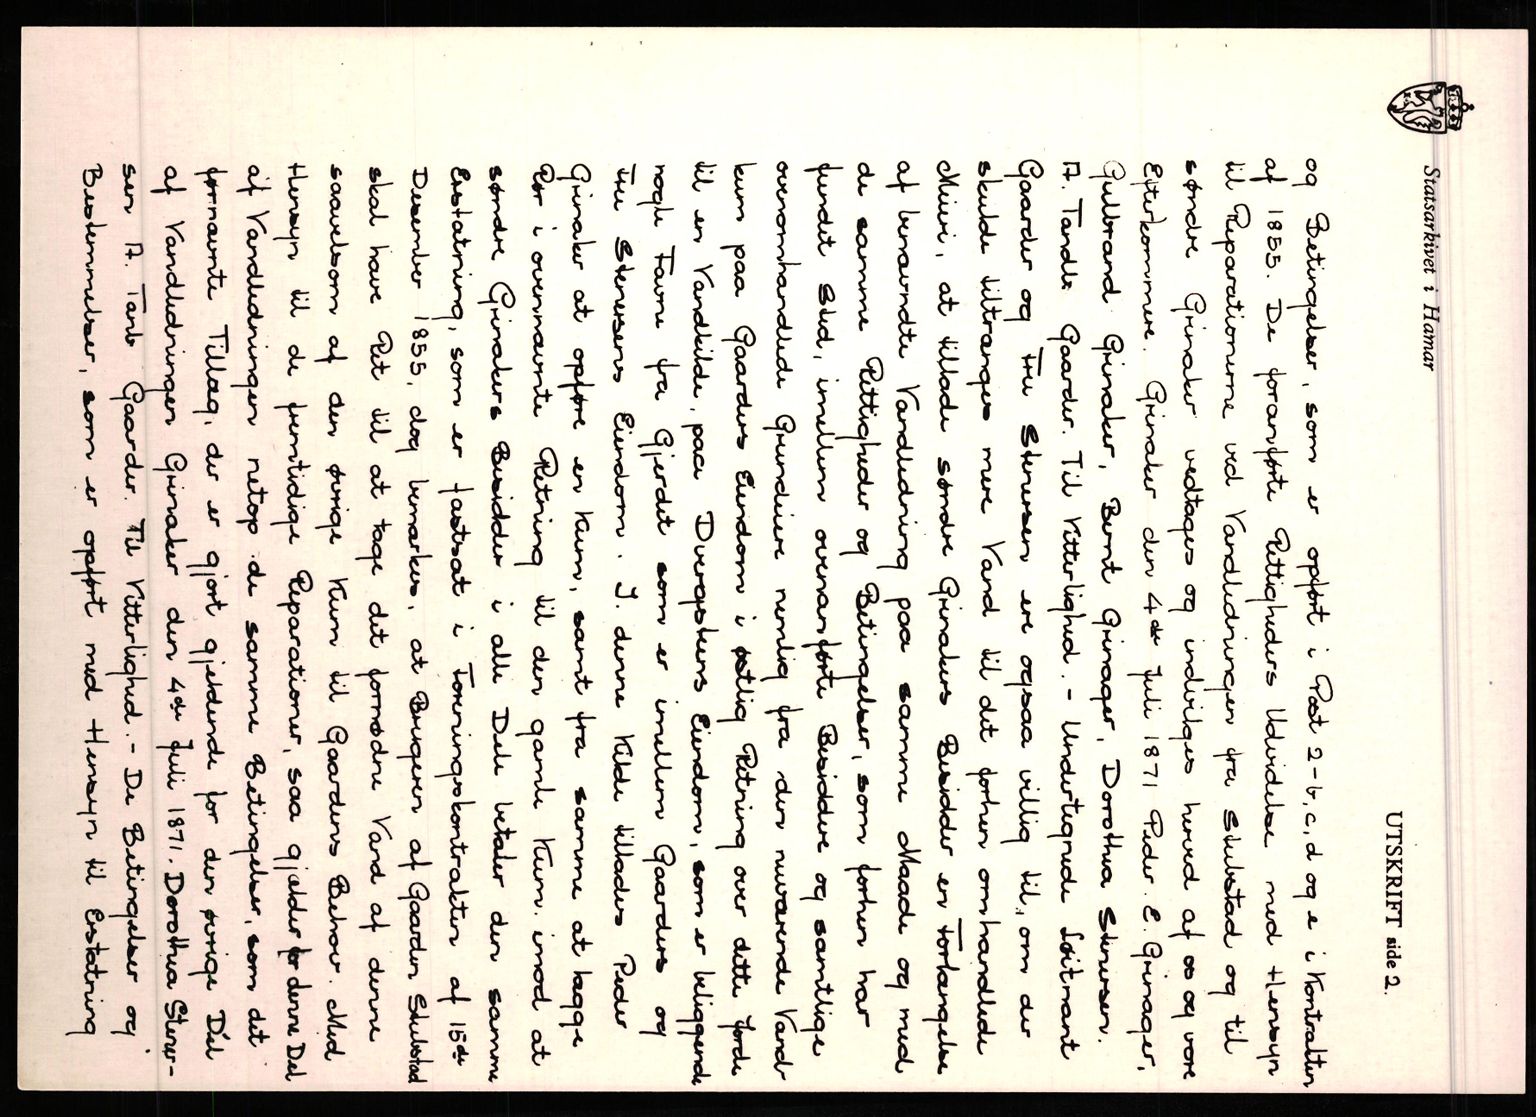 Statsarkivet i Hamar
UTSKRIFT side 2.
og Betingelser, som er opført i Post 2-b, c, d og e i Kontrakten
af 1855. De foranførte Rettigheders Udvidelse med Hensyn
til Reparationerne ved Vandledningen fra Skulstad og til
søndre Grinaker vedtages og indvilges herved af os og vore
Efterkommere. Grinaker den 4de Juli 1871 Peder E. Grinager,
Gulbrand Grinaker, Bernt Grinager, Dorothea Stenersen.
A. Tandb Gaarder. Til Vitterlighed. - Undertegnede Løitnant
Gaarder og Fru Stenersen ere ogsaa villig til, om der
skulde tiltrænges mere Vand til det forhen omhandlede
Meieri, at tillade søndre Grinakers Besidder en Forlængelse
af benævndte Vandledning paa samme Maade og med
de samme Rettigheder og Betingelser, som forhen har
fundet Sted, imellem ovenanførte Besiddere og samtlige
ovenomhandlede Grundeiere nemlig fra den nuværende Vand-
kum paa Gaarders Eiendom i østlig Retning over dette Jorde
til en Vandkilde, paa Dvergsteens Eiendom, som er beliggende
nogle Favne fra Gjerdet som er imellem Gaarders og
Fru Stenersens Eiendom. I denne Kilde tillades Peder
Grinaker at opføre en Kum, samt fra samme at lægge
Rør i ovennævnte Retning til den gamle Kum. imod at
søndre Grinakers Besidder i alle Dele betaler den samme
Erstatning, som er fastsat i Foreningskontrakten af 15de
Desember 1855, dog bemærkes, at Brugeren af Gaarden Skulstad
skal have Ret til at tage det fornødne Vand af denne
saavelsom af den øvrige Kum til Gaardens Behov. Med
Hensyn til de fremtidige Reparationer, saa gjælder for denne Del
af Vandledningen netop de samme Betingelser, som det
fornævnte Tillæg, der er gjort gjeldende for den øvrige Del
af Vandledningen Grinaker den 4de Juli 1871. Dorothea Stener-
sen A. Tanb Gaarder. Til Vitterlighed. - De Betingelser og
Bestemmelser, som er opført med Hensyn til Erstatning